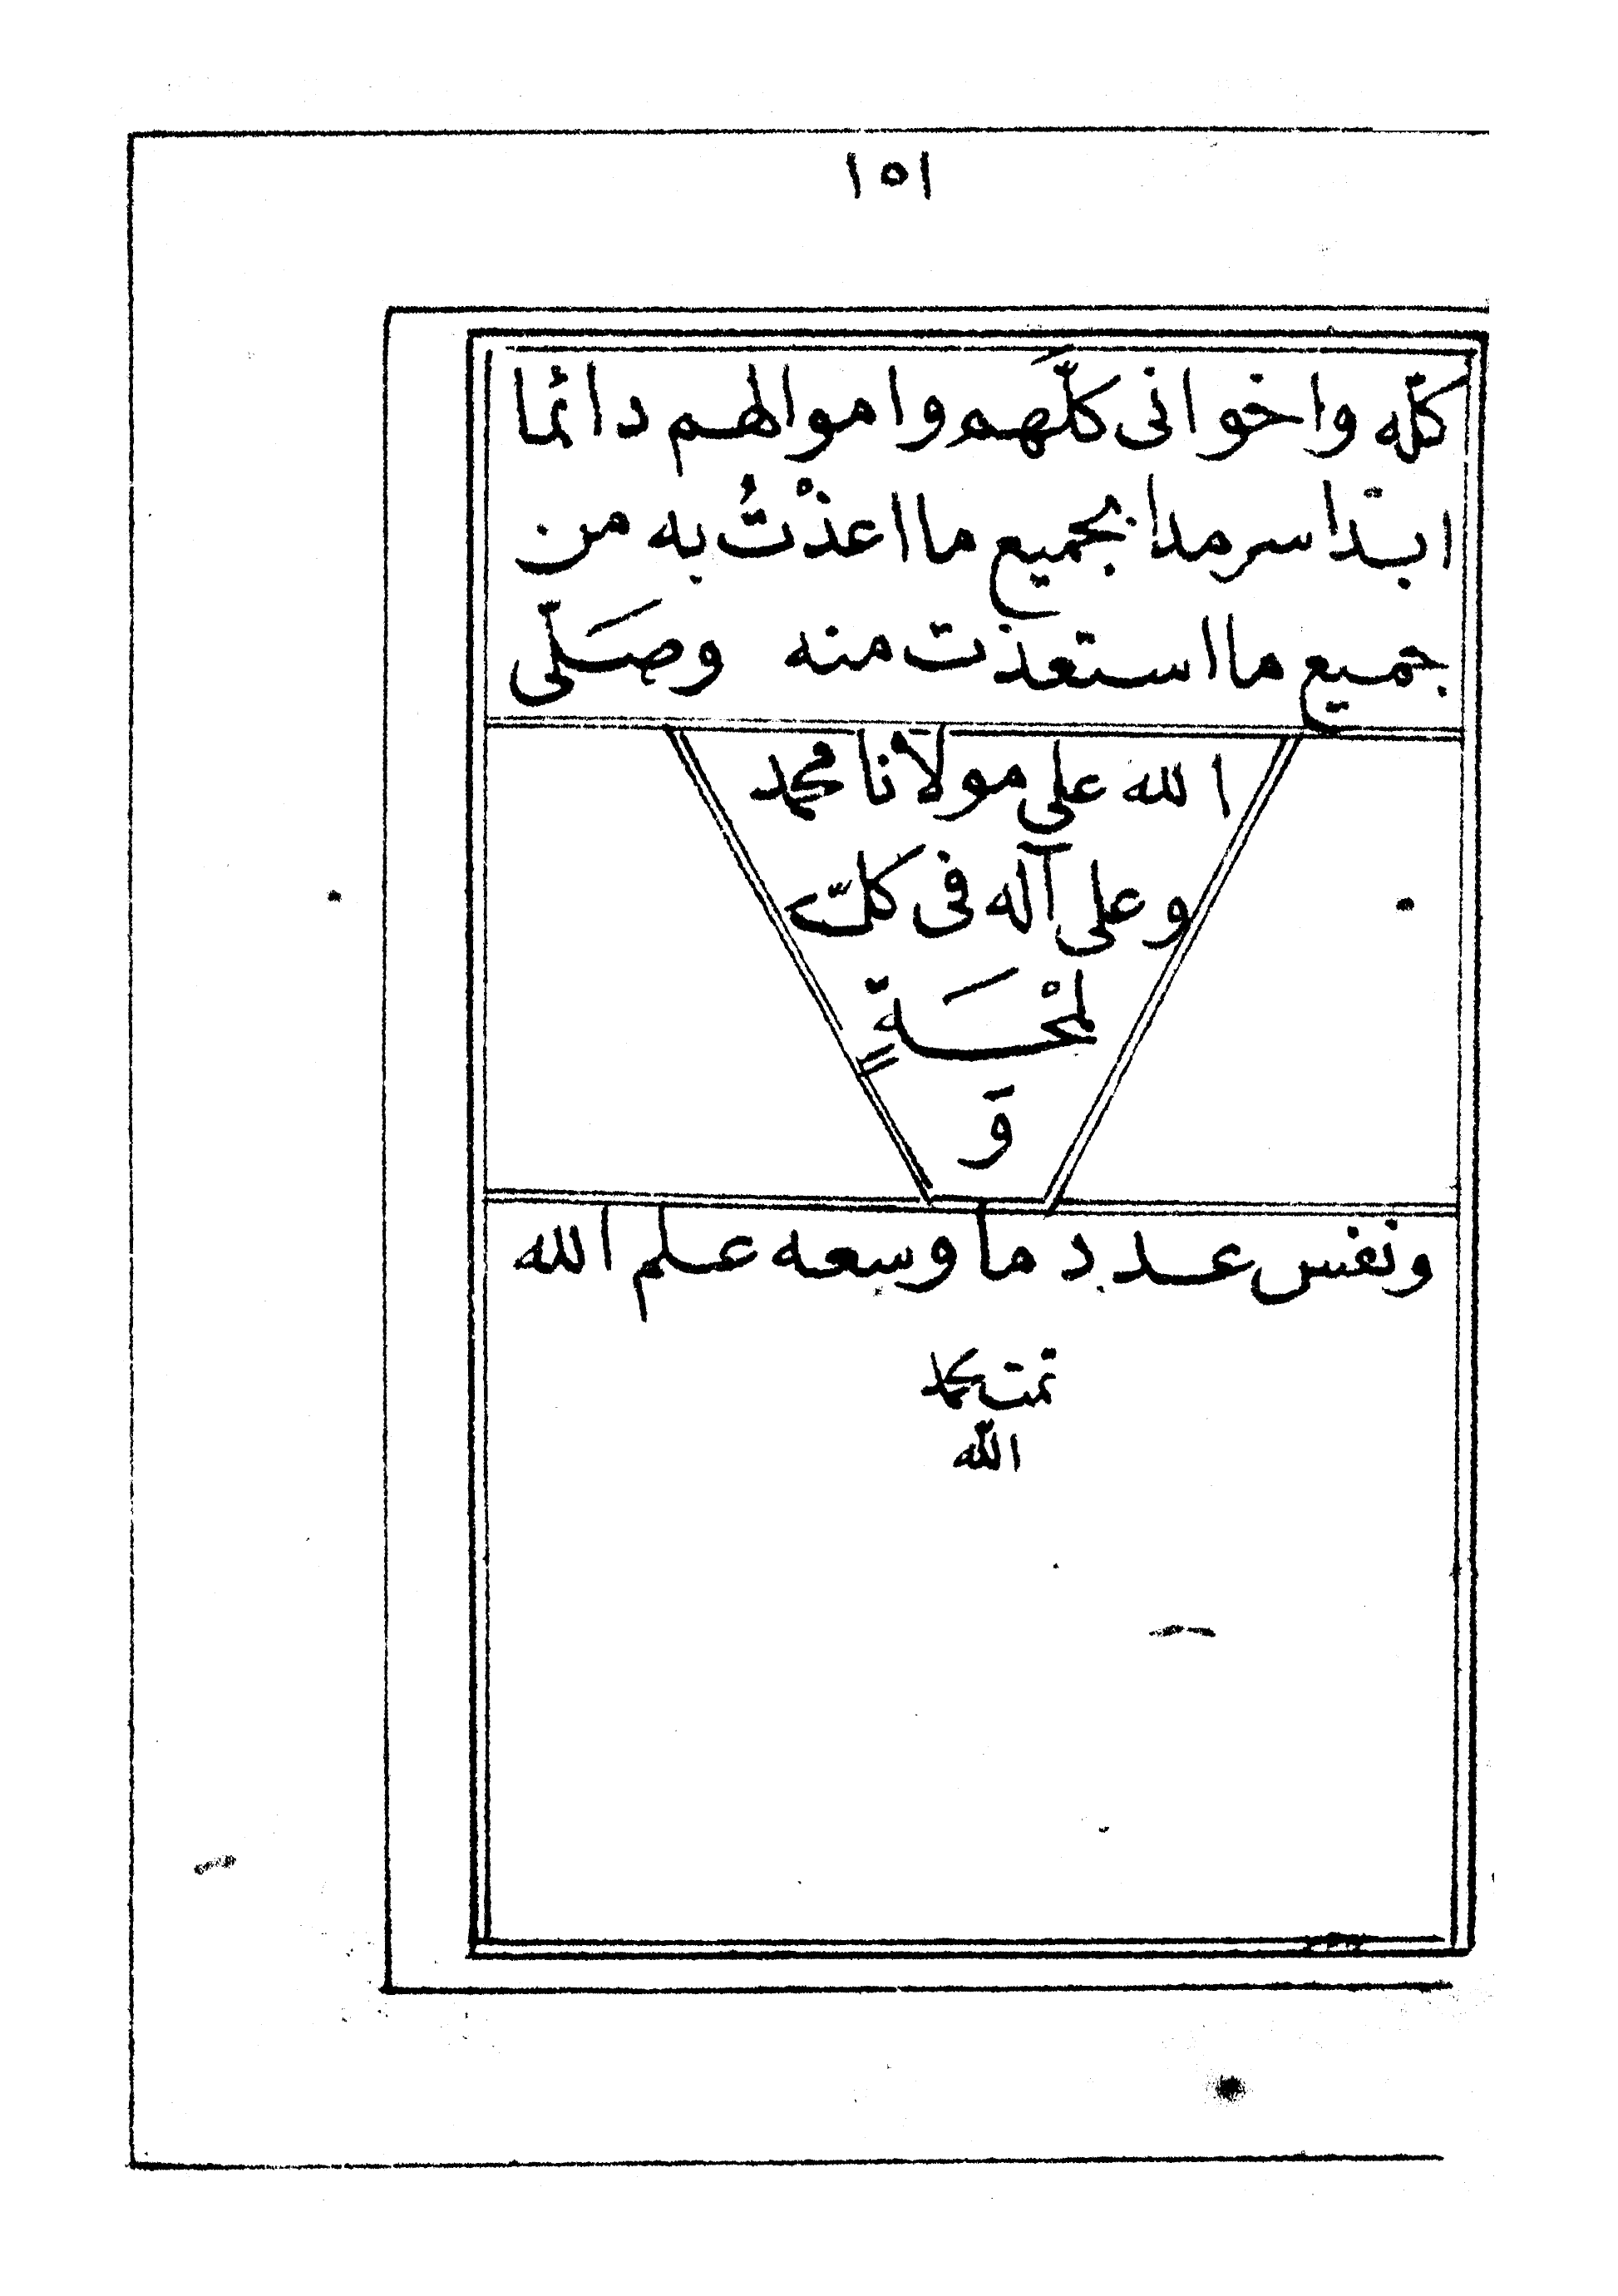 ١٥١
كلّه واخوانى كلَّهم واموالهم دائما
ابدا سرمدا بجميع ما اعذْتُ به من
جميع ما استعذت منه وصَلّى
الله على مولانا محمد
وعلى آله فى كلّ
لمْحَةٍ
وَ
ونفس عدد ما وسعه علم الله
تمت بحمد
الله